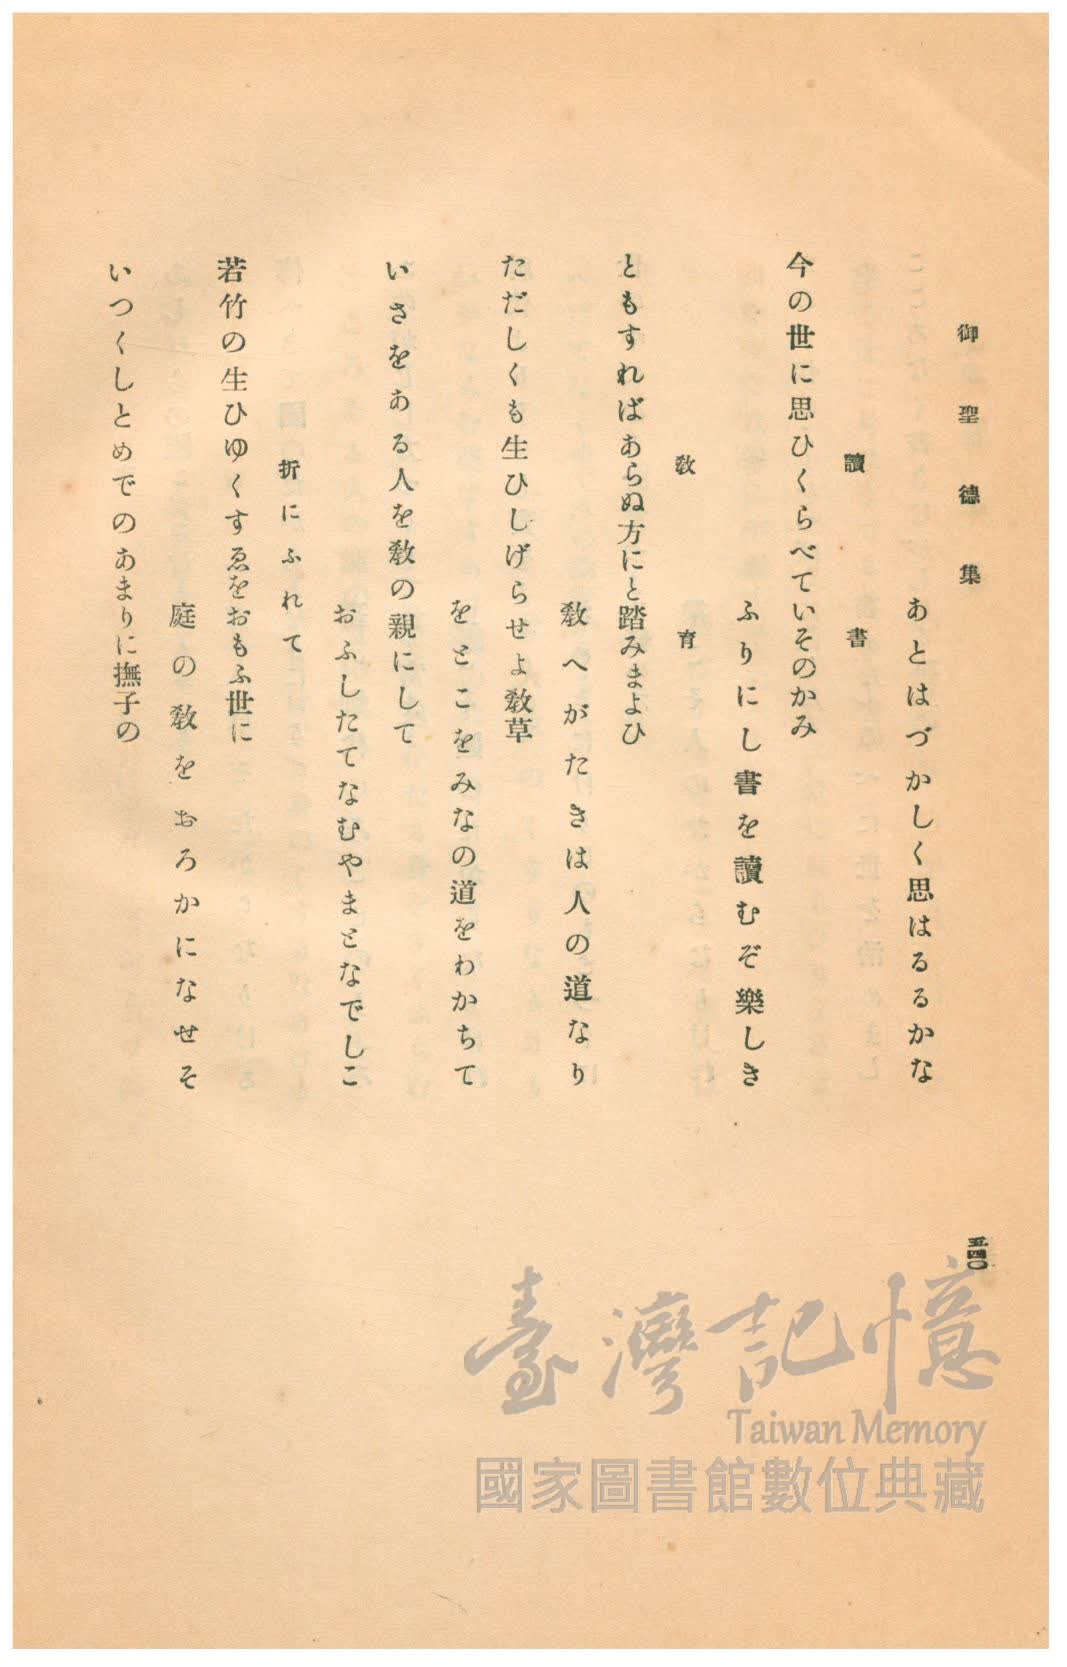 御聖德集
あとはづかしく思はるるかな
讀書
今の世に思ひくらべていそのかみ
ふりにし書を讀むぞ樂しき
敎育
ともすればあらぬ方にと踏みまよひ
敎へがたきは人の道なり
ただしくも生ひしげらせよ敎草
をとこをみなの道をわかちて
いさをある人を敎の親にして
おふしたてなむやまとなでしこ
折にふれて
若竹の生ひゆくすゑをおもふ世に
庭の敎をおろかになせそ
いつくしとめでのあまりに撫子の
五四〇
臺灣記憶
Taiwan Memory
國家圖書館數位典藏